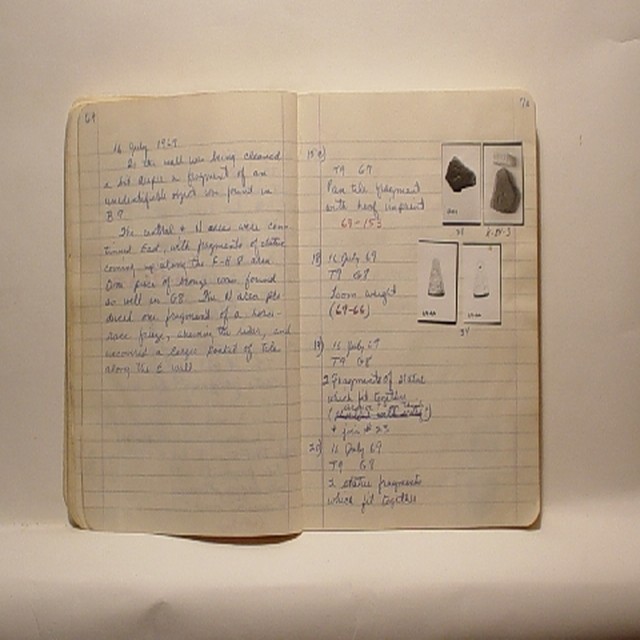 69
16 July 1969
As the wall was being cleaned
a bit deeper a fragment of an
unidentifiable object was found in
B 9.
The central & N areas were con-
tinued East, with fragments of statue
coming up along the area
One piece of bronze was found
as well in G8. The N area pro-
duced one fragment of a horse-
race frieze, showing the rider, and
uncovered a larger portion of tile
along the E wall.
70
T9 G9
Pan tile fragment
with hoof imprint
69-153
18) 16 July 69
T9 G8
Loom weight
(69-66)
19) 16 July 69
T9 G8
2 fragments of statue
which fit together
& join # 23
20) 16 July 69
T9 G9
2 statue fragments
which fit together